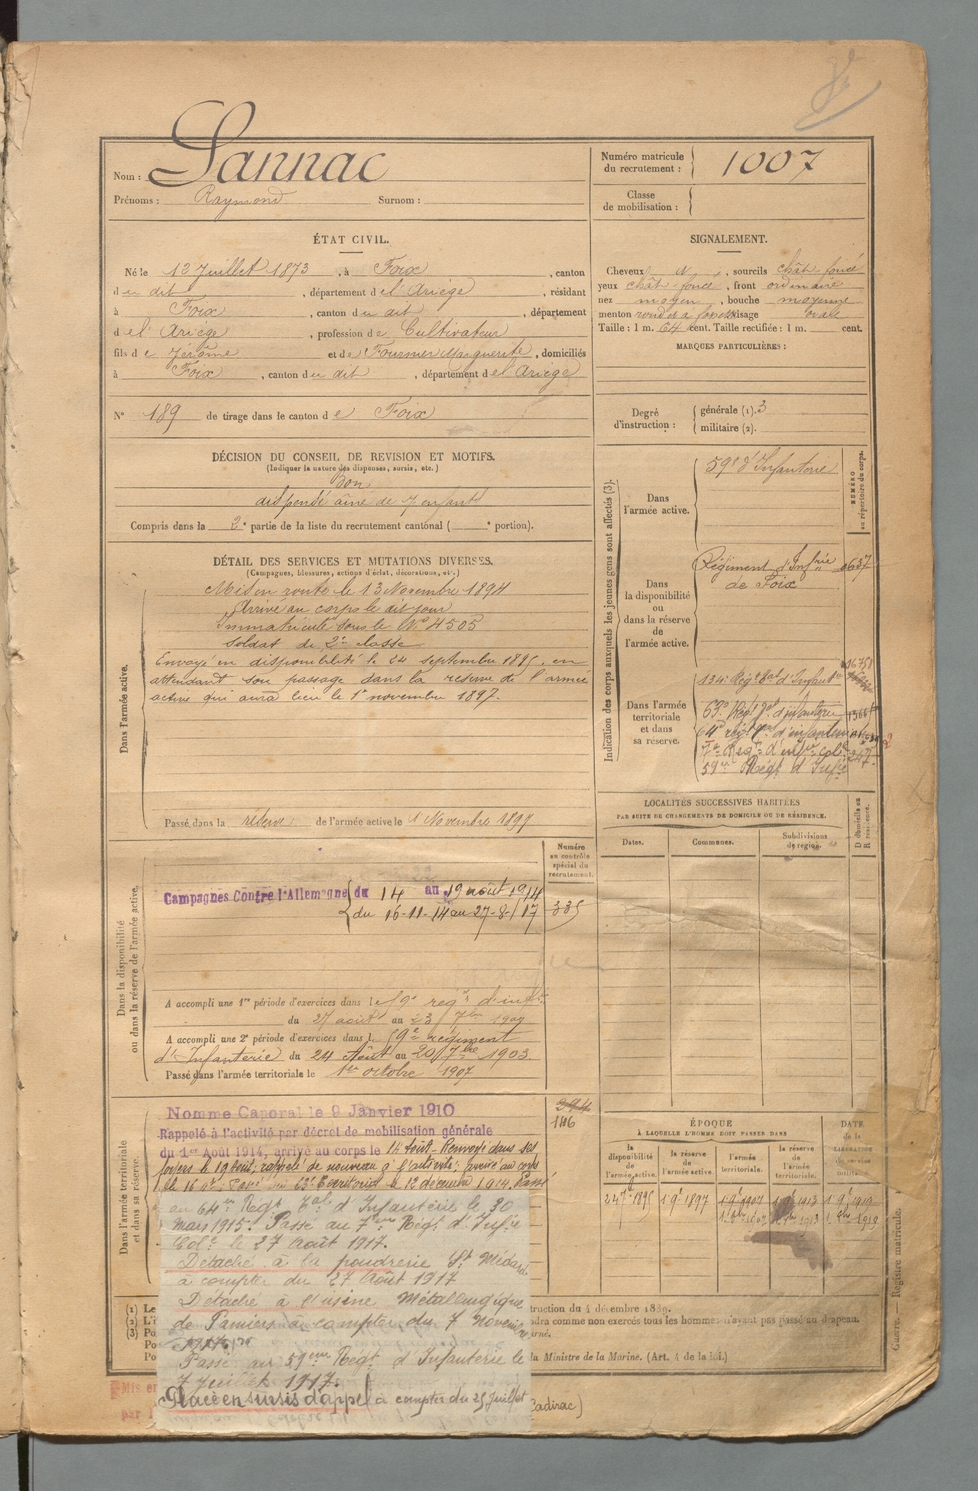 Nom : Lannac
Prénoms : Raymond Surnom :
Numéro matricule du recrutement : 1007
Classe de mobilisation :
ÉTAT CIVIL.
Né le 12 Juillet 1873, à Foix, canton
du dit, département de l'Ariège, résidant
à Foix, canton du dit, département
de l'Ariège, profession de Cultivateur
fils de Jérôme et de Fournier Marguerite, domiciliés
à Foix, canton du dit, département de l'Ariège
N° 189 de tirage dans le canton de Foix
SIGNALEMENT.
Cheveux N, sourcils chât. foncé
yeux chât. foncé, front ordinaire
nez moyen, bouche moyenne
menton rond visage ovale
Taille : 1 m. 64 cent. Taille rectifiée : 1 m. cent.
MARQUES PARTICULIÈRES :
Degré d'instruction : générale (1). 3
militaire (2).
DÉCISION DU CONSEIL DE REVISION ET MOTIFS.
(Indiquer la nature des dispenses, sursis, etc.)
Bon
dispensé aîné de 7 enfant
Compris dans la 2e partie de la liste du recrutement cantonal ( e portion).
DÉTAIL DES SERVICES ET MUTATIONS DIVERSES.
(Campagnes, blessures, actions d'éclat, décorations, etc.)
Dans l'armée active.
Mis en route le 13 Novembre 1894
Arrivé au corps le dit jour
Immatriculé sous le N° 4505
Soldat de 2e classe
Envoyé en disponibilité le 24 septembre 1895, en
attendant son passage dans la réserve de l'armée
active qui aura lieu le 1er novembre 1897.
Passé dans la réserve de l'armée active le 1 Novembre 1897
Indication des corps auxquels les jeunes gens sont affectés (3).
NUMÉRO au répertoire du corps.
Dans l'armée active.
59e d'Infanterie
Dans la disponibilité ou dans la réserve de l'armée active.
Régiment d'Infrie
de Foix
Dans l'armée territoriale et dans sa réserve.
134e Régt tal d'Infanterie
63e Régt tal d'infanterie
64e régt tal d'infanterie
7e Régt d'infrie cole
59me Régt d'Infie
LOCALITÉS SUCCESSIVES HABITÉES
PAR SUITE DE CHANGEMENTS DE DOMICILE OU DE RÉSIDENCE.
Dates. Communes. Subdivisions de région. D domicile ou R résidence.
Dans la disponibilité ou dans la réserve de l'armée active.
Numéro au contrôle spécial du recrutement.
Campagnes Contre l'Allemagne du 14 au 19 août 1914
du 16-11-14 au 27-8-17
335
A accompli une 1re période d'exercices dans le 59e régt d'infie
du 27 août au 23 7bre
A accompli une 2e période d'exercices dans le 59e régiment
d'Infanterie du 24 Août au 20 7bre 1903
Passé dans l'armée territoriale le 1er octobre 1907
Dans l'armée territoriale et dans sa réserve.
Nommé Caporal le 9 Janvier 1910
Rappelé à l'activité par décret de mobilisation générale
du 1er Août 1914, arrivé au corps le 14 Août. Renvoyé dans ses
foyers le 19 Août, rappelé de nouveau à l'activité; arrivé au corps
le 16 9bre. Passé au 63e territorial le 12 décembre 1914. Passé
au 64me Régt tal d'Infanterie le 30
mars 1915. Passé au 7me Régt d'Infie
Cole le 27 Août 1917.
Détaché à la poudrerie St Médard
à compter du 27 Août 1917
Détaché à l'usine Métallurgique
de Pamiers à compter du 7 Novembre
1917
Passé au 59eme Régt d'Infanterie le
7 juillet 1917.
Placé en sursis d'appel à compter du 25 Juillet
ÉPOQUE
À LAQUELLE L'HOMME DOIT PASSER DANS
la disponibilité de l'armée active. la réserve de l'armée active. l'armée territoriale. la réserve de l'armée territoriale. DATE de la LIBÉRATION du service militaire.
24 7bre 1895 1 9bre 1897 1 9bre 1907 1 9bre 1913 1 9bre 1919
truction du 4 décembre 1889.
ndra comme non exercés tous les hommes n'ayant pas passé au drapeau.
du Ministre de la Marine. (Art. 4 de la loi.)
Guerre. — Registre matricule.